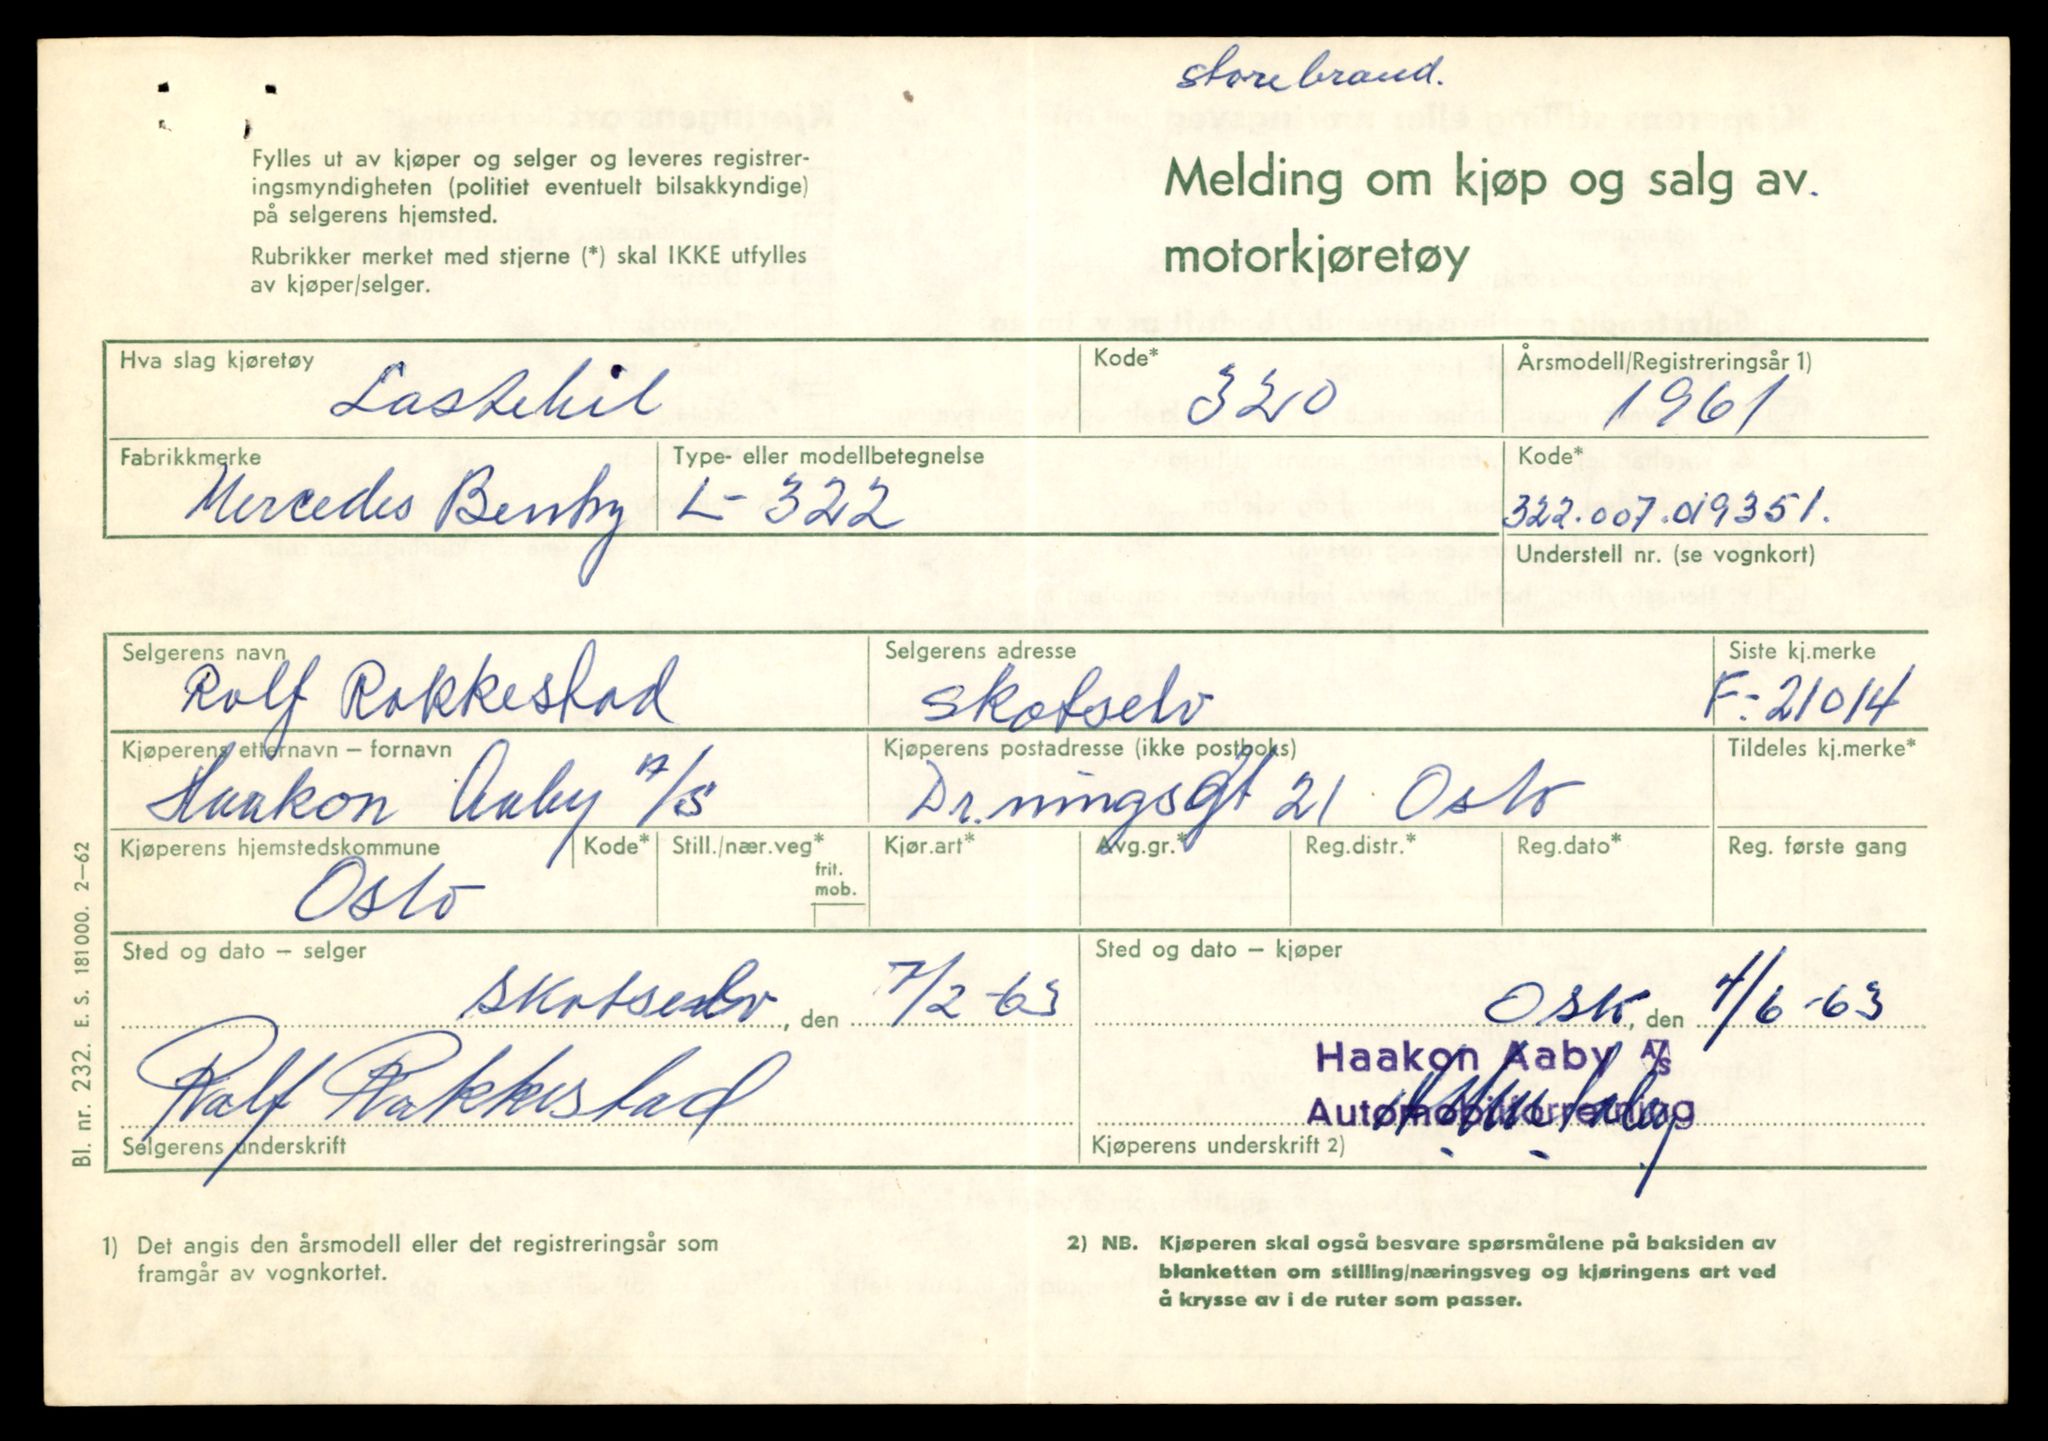 storebrand.
Fylles ut av kjøper og selger og leveres registrer-
ingsmyndigheten (politiet eventuelt bilsakkyndige)
på selgerens hjemsted.
Rubrikker merket med stjerne (*) skal IKKE utfylles
av kjøper/selger.
Melding om kjøp og salg av
motorkjøretøy
Hva slag kjøretøy Kode* Årsmodell/Registreringsår 1)
Lastebil 320 1961
Fabrikkmerke Type- eller modellbetegnelse Kode*
Mercedes L-322 322.007.019351.
Understell nr. (se vognkort)
Selgerens navn Selgerens adresse Siste kj.merke
Rolf Rokkestad Skotselv F.-21014
Kjøperens etternavn – fornavn Kjøperens postadresse (ikke postboks) Tildeles kj.merke*
Haakon Aaby A/S Dr.ningsgt 21 Oslo
Kjøperens hjemstedskommune Kode* Still./nær.veg* Kjør.art* Avg.gr.* Reg.distr.* Reg.dato* Reg. første gang
frit.
mob.
Oslo
Sted og dato – selger Sted og dato – kjøper
Skotselv, den 7/2-63 Oslo, den 4/6-63
Haakon Aaby A/S
Automobilforretning
Rolf Rokkestad
Selgerens underskrift Kjøperens underskrift 2)
1) Det angis den årsmodell eller det registreringsår som
framgår av vognkortet.
2) NB. Kjøperen skal også besvare spørsmålene på baksiden av
blanketten om stilling/næringsveg og kjøringens art ved
å krysse av i de ruter som passer.
Bl. nr. 232. E. S. 181000. 2–62